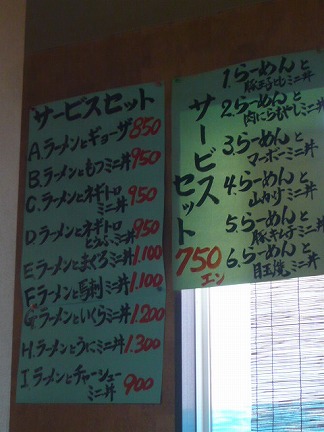 サービスセット
A.ラーメンとギョーザ 850
B.ラーメンともつミニ丼 950
C.ラーメンとネギトロ
ミニ丼 950
D.ラーメンとネギトロ
とうふミニ丼 950
E.ラーメンとまぐろミニ丼 1.100
F.ラーメンと馬刺ミニ丼 1.100
G.ラーメンといくらミニ丼 1.200
H.ラーメンとうにミニ丼 1.300
I ラーメンとチャーシュー
ミニ丼 900
サービスセット
750
エン
1.らーめんと
豚玉子とじミニ丼
2.らーめんと
肉にらもやしミニ丼
3.らーめんと
マーボーミニ丼
4.らーめんと
山かけミニ丼
5.らーめんと
豚キムチミニ丼
6.らーめんと
目玉焼ミニ丼